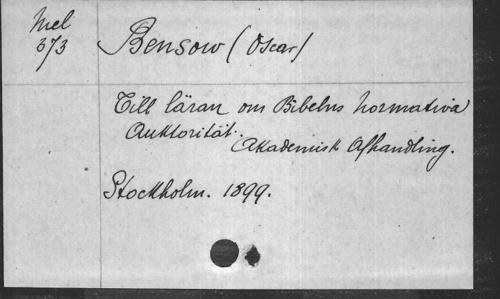 Mel
373
Bensow (Oscar)
Till läran om Bibelns normativa
Auktorität.
Akademisk Afhandling.
Stockholm. 1899.